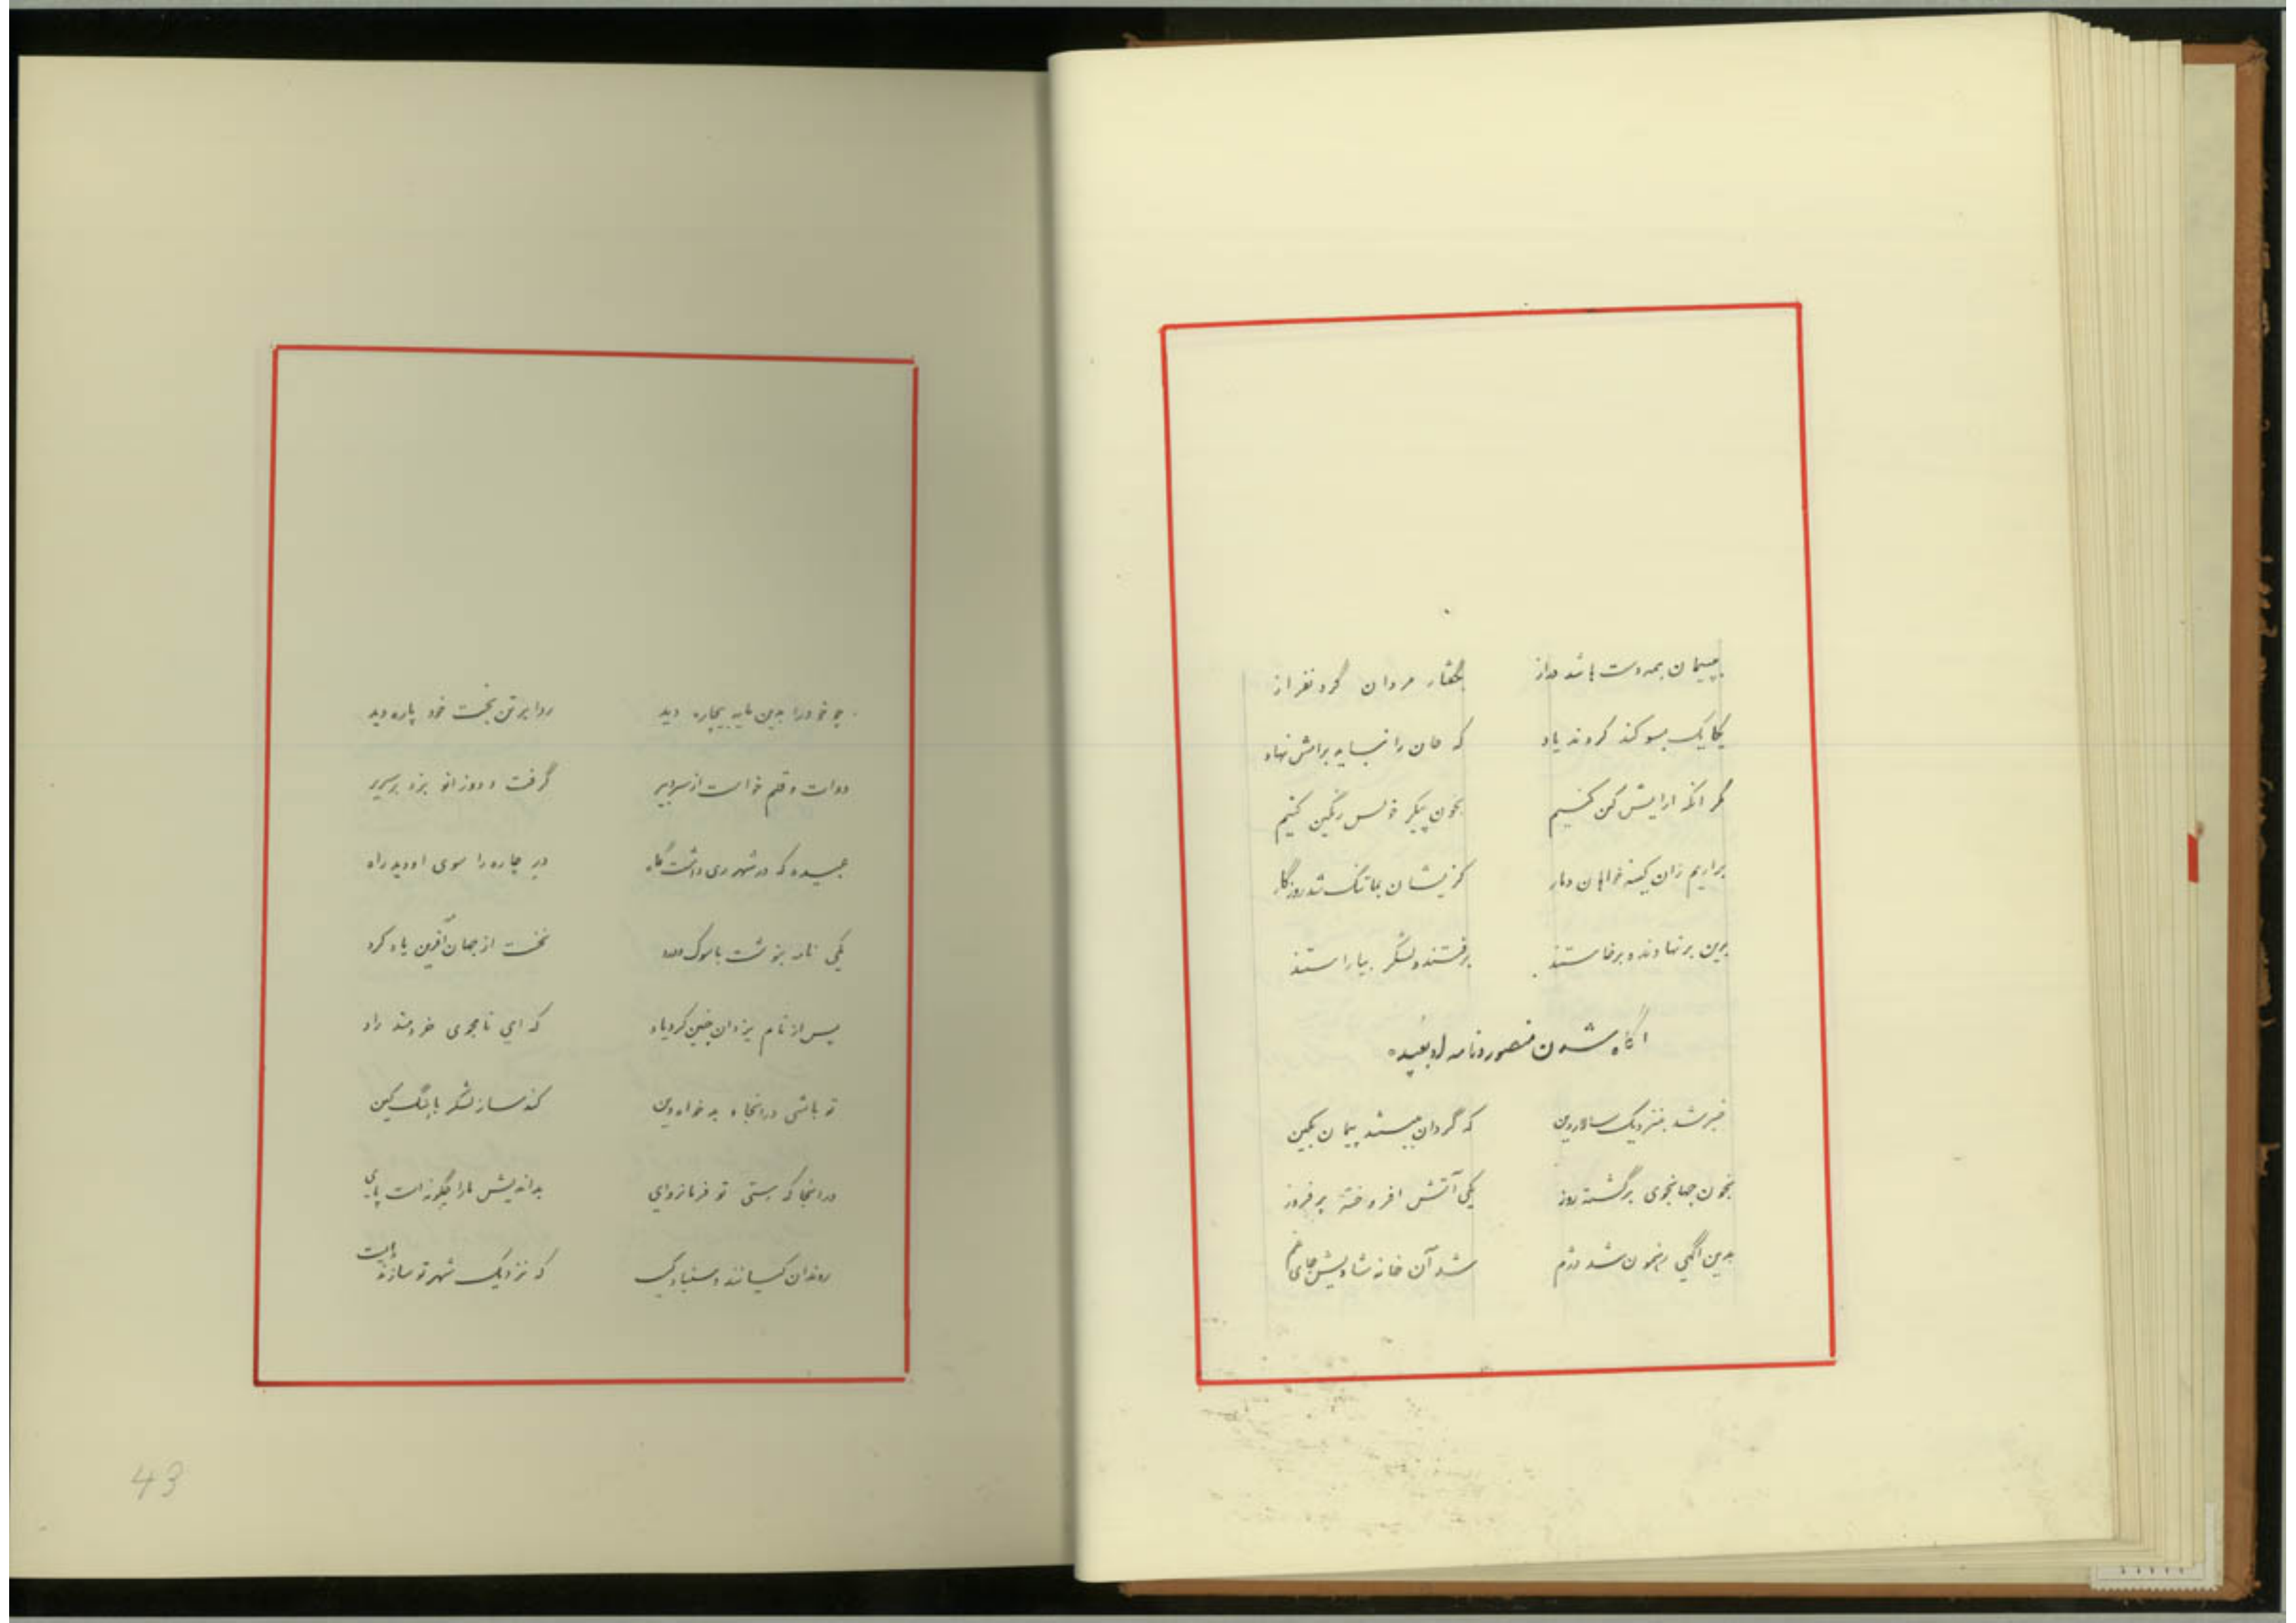 بپیمان همه دست باشد دراز بگفتار مردان گردنفراز
یکایک بسوگند کردند یاد که جان را نباید برامش نهاد
مگر انکه ارایش کین کنیم بخون پیکر خویش رنگین کنیم
براریم زان کینه خواهان دمار کزیشان بما تنگ شد روزگار
برین برنهادند و برخاستند برفتند و لشکر بیاراستند
اگاه شدن منصور و نامه او بعبیده
خبر شد بنزدیک سالار دین که گردان ببستند پیمان بکین
بخون جهانجوی برگشته روز یکی آتش افروخته برفروز
بدین اگهی رهنمون شد دژم شد آن خانه شادیش جای غم
چو خود را بدین مایه بیچاره دید ردا بر تن بخت خود پاره دید
دوات و قلم خواست از سر دبیر گرفت و دوزانو بزد بر سریر
عبیده که در شهر ری داشت گاه در چاره را سوی او دید راه
یکی نامه بنوشت با سوک و درد نخست از جهان آفرین یاد کرد
پس از نام یزدان چنین کرد یاد که ای نامجوی خردمند راد
تو باشی در انجا و بدخواه دین کند ساز لشکر باهنگ کین
در انجا که هستی تو فرمانروای بداندیش ما را چگونه است پای
روندان کیسانند و سنباد که نزدیک شهر تو سازند
43